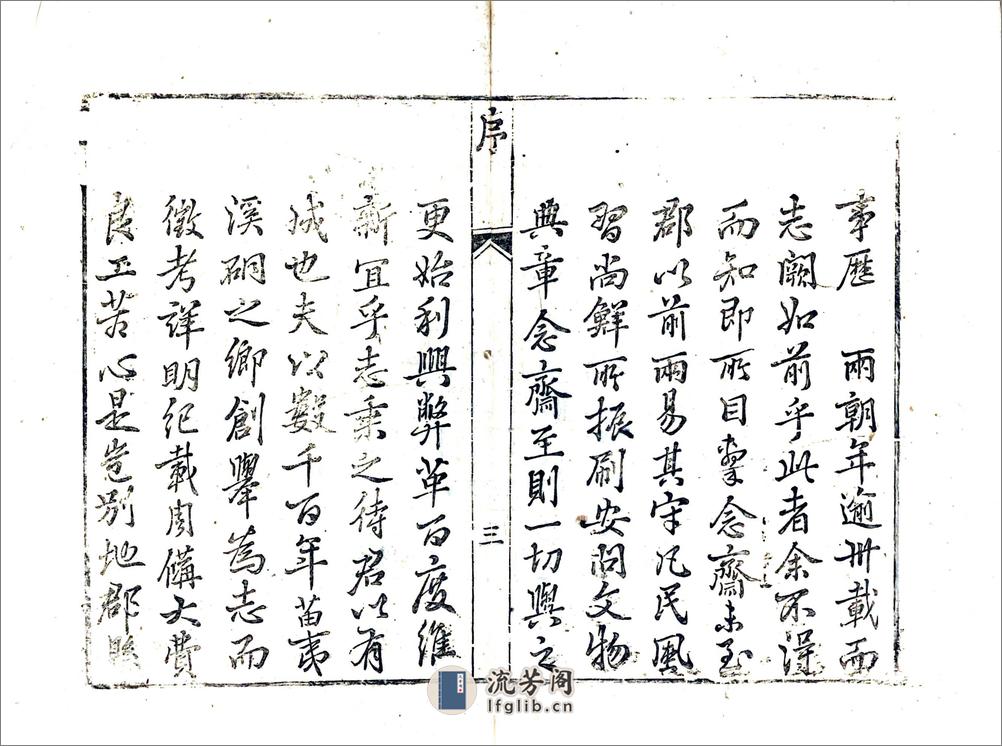 事歷　兩朝年逾卅載而
志闕如前乎此者余不得
而知即所目擊念齋未至
郡以前兩易其守凡民風
習尚鮮所振刷安問文物
典章念齋至則一切與之
序
三
更始利興弊革百度維
新宜乎志乘之待君以有
成也夫以數千百年苗夷
溪硐之鄉創舉為志而
徵考詳明紀載周備大費
良工苦心是豈別地郡縣
流芳阁
lfglib.cn